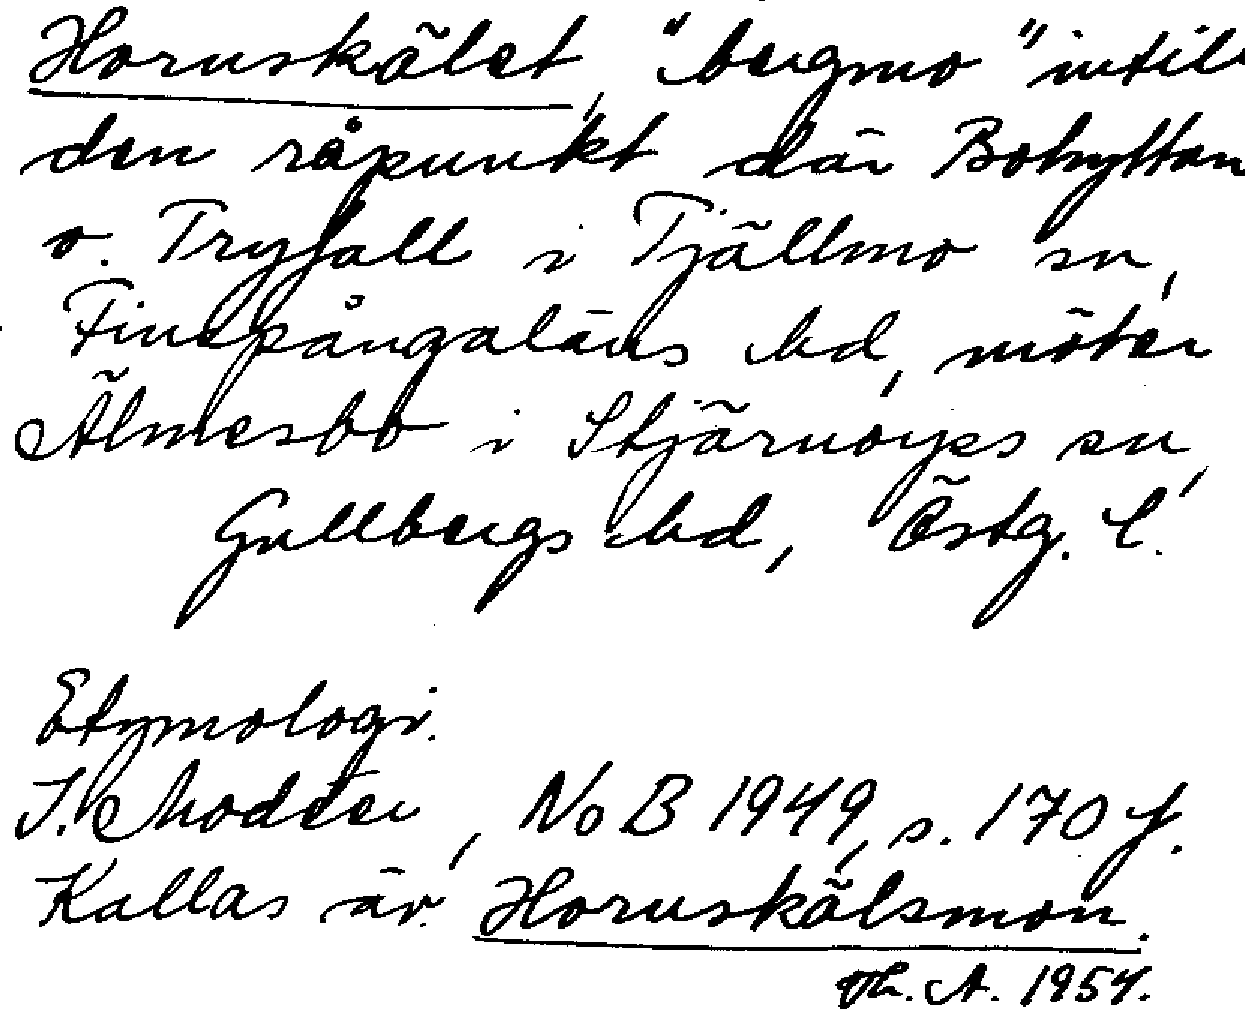 Hornskälet, "bergmo" intill
den råpunkt där Bohyttan
o. Tryfall i Tjällmo sn,
Finspångaläns hd, möter
Älmesbo i Stjärnorps sn,
Gullbergs hd, Östg. l.
Etymologi.
I. Modéer, NoB 1949, s. 170 f.
Kallas äv. Hornskälsmon.
Th. A. 1954.